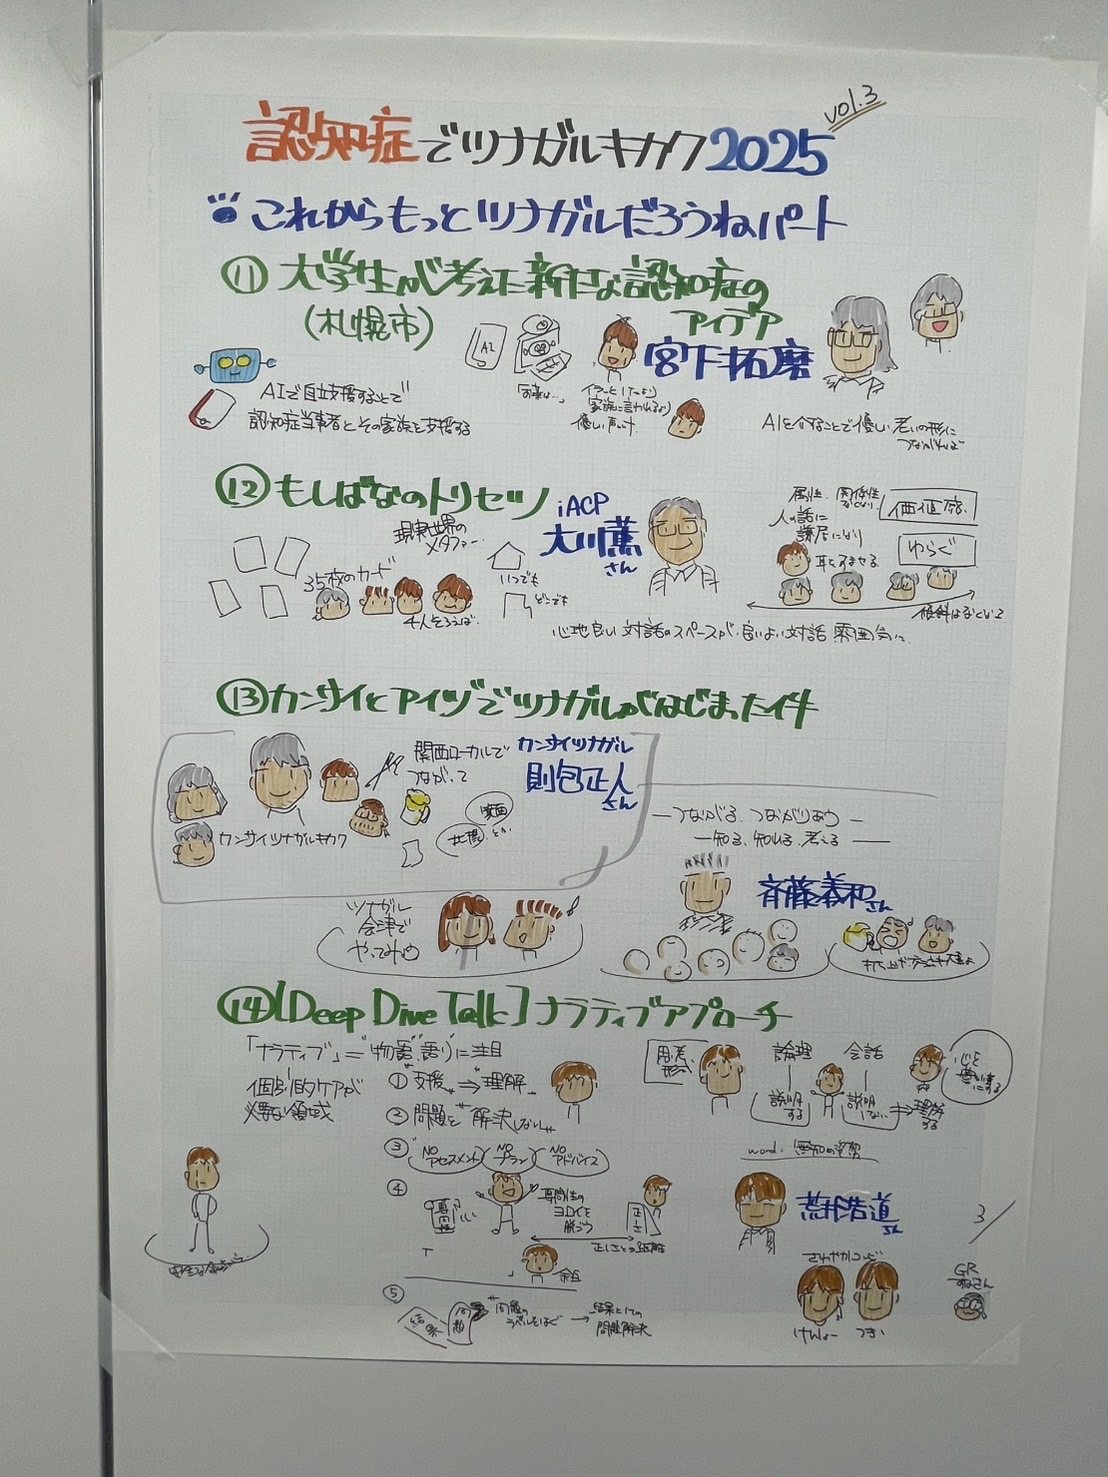 vol.3
認知症でツナガルキカク2025
これからもっとツナガルだろうねパート
⑪大学生が考えた新たな認知症の
アイデア
(札幌市)
宮下拓磨
AI
AIで自立支援することで
認知症当事者とその家族を支援する
家族に言われるより
優しい声かけ
AIを介することで優しい老いの形に
つながれば
⑫もしばなのトリセツ
iACP
大川薫
さん
現実世界の
メタファー
35枚のカード
4人そろえば
いつでも
どこでも
属性、関係性
人の話に
謙虚になり
耳をすませる
価値感
ゆらぐ
傾斜はなくいこ
心地良い対話のスペースが良いよい対話 雰囲気に
⑬カンサイとアイヅでツナガルがはじまった件
関西ローカルで
つながって
カンサイツナガル
則包正人
さん
カンサイツナガルキカク
映画
とか
つながる、つながりあう
知る、知れる、考える
斉藤義和さん
ツナガル
会津で
やってみnight
⑭[Deep Dive Talk]ナラティブアプローチ
「ナラティブ」="物語、語り"に注目
個別的ケアが
必要な領域
①"支援"⇒"理解"
②問題を"解決しない"
③NOアセスメント NOプラン NOアドバイス
④
専門性
専門性の
ヨロイを
脱ごう
正しさ
正しさとの距離
余白
⑤
問題
"問題の
ラベルをはぐ
→結果としての
問題解決
思考、
形式
論理
説明
する
会話
説明
しない
⇒理解
する
心を
word: 無知の姿勢
荒井浩道
さん
3/
さわやかコンビ
けんしょー つきい
GR
すなさん